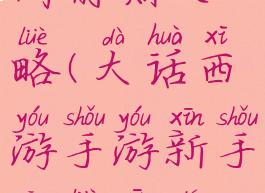 lüè dà huà xī
略(大话西
yóu shǒu yóu xīn shǒu
游手游新手